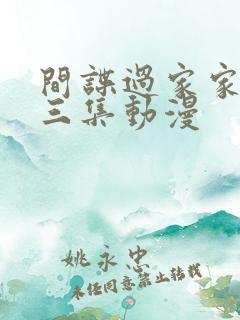 間諜過家家
三集動漫
姚永忠
未經同意禁止轉載